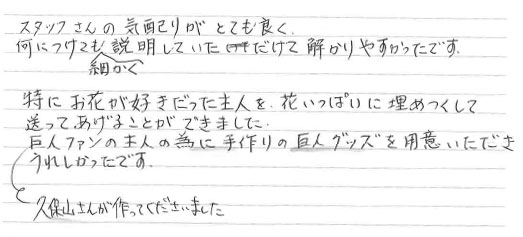 スタッフさんの気配りがとても良く、
何につけても細かく説明していただけて解かりやすかったです。
特にお花が好きだった主人を、花いっぱいに埋めつくして
送ってあげることができました。
巨人ファンの主人の為に手作りの巨人グッズを用意いただき
うれしかったです。
久保山さんが作ってくださいました